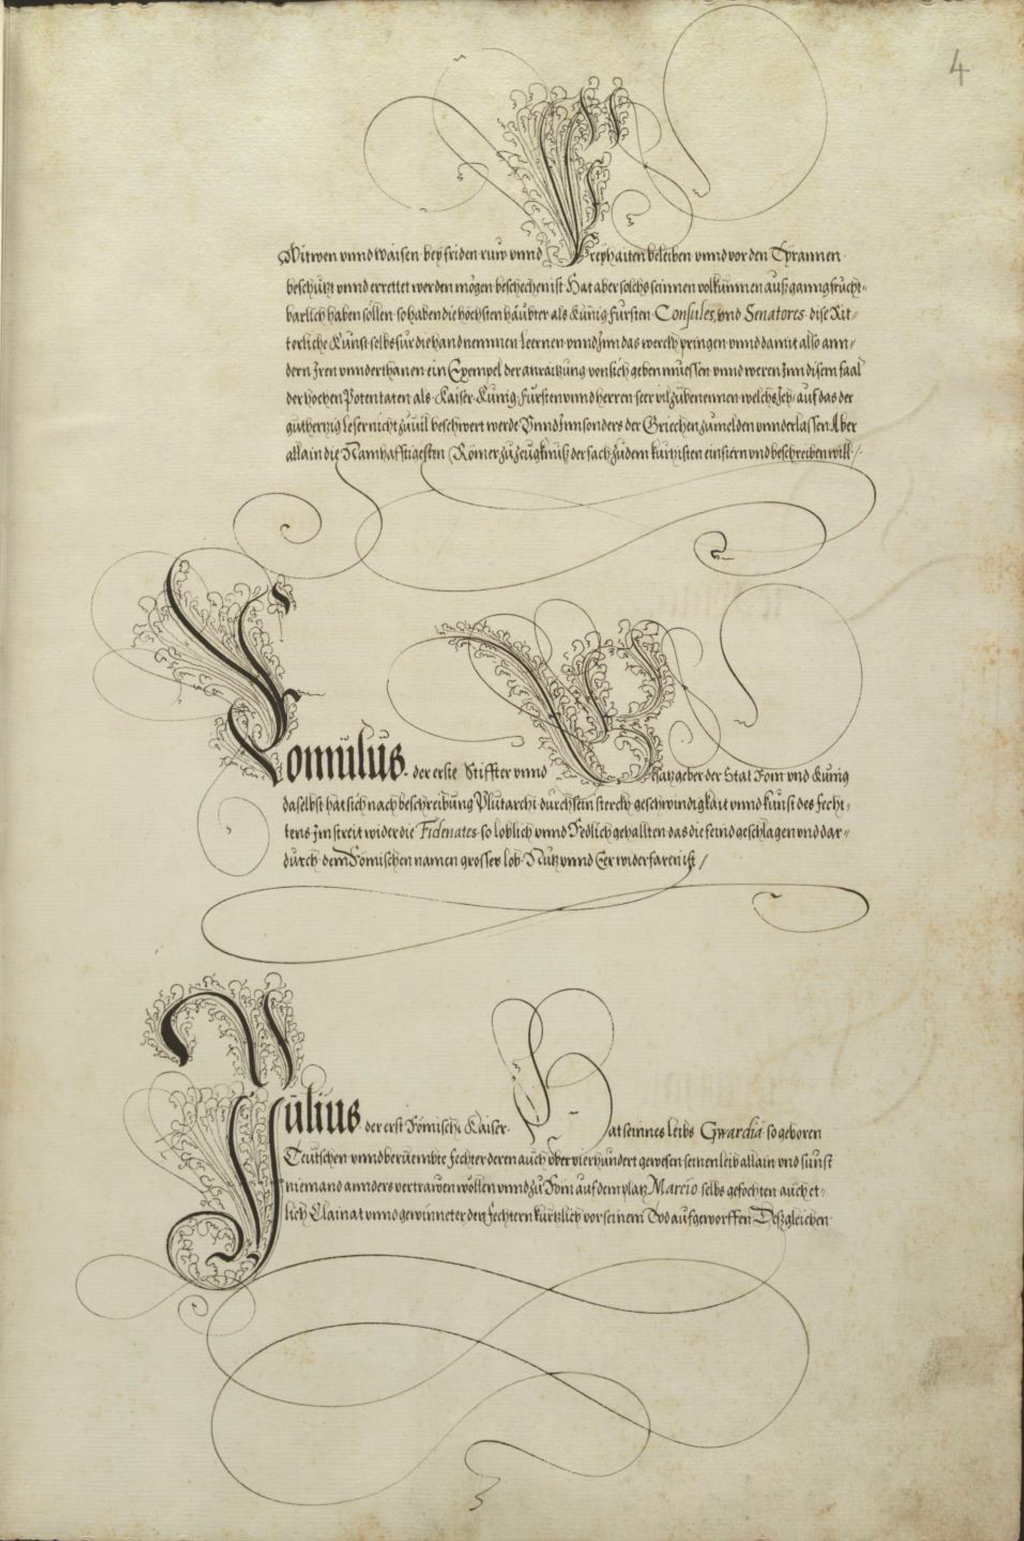 4
Witwen vnnd Waisen bey friden ruw vnnd Freyhaiten beleiben vnnd vor den Tyrannen
beschützt vnnd errettet werden mögen beschechen ist Hat aber solchs seinnen volkumnen außganng frücht-
barlich haben sollen so haben die höchsten häubter als Künig Fürsten Consules, vnd Senatores dise Rit-
terliche Kunst selbs für die hand nemmen leernen vnnd Inn das werckh pringen vnnd damit also ann-
dern Iren vnnderthanen ein Exempel der anraitzung von sich geben müessen vnnd weren Inn disem faal
der hochen Potentaten als Kaiser Künig Fürsten vnnd herren seer vil zubenennen welchs Ich auf das der
guthertzig Leser nicht zuuil beschwert werde Vnnd Innsonders der Griechen zumelden vnnderlassen Aber
allain die Namhafftigesten Römer zu zeugknuß der sach zu dem kurtzisten einfiern vnd beschreiben will /.
Romulus der erste Stiffter vnnd Bawgeber der Stat Rom vnd Künig
daselbst hat sich nach beschreibung Plutarchi durch sein sterckh geschwindigkait vnnd kunst des fecht-
tens Im streit wider die Fidenates so loblich vnnd Redlich gehallten das die feind geschlagen vnnd dar-
durch dem Römischen namen grosser lob Nutz vnnd Eer widerfaren ist /
Julius der erst Römische Kaiser Hat seinnes leibs Gwardia so geboren
Teutschen vnnd berüembte Fechter deren auch vber vierhundert gewesen seinen leib allain vnd sunst
niemand annders vertrawen wöllen vnnd zu Rom auf dem platz Marcio selbs gefochten auch et-
lich Clainat vnnd gewinneter den Fechtern kurtzlich vor seinem Tod aufgeworffen Deßgleichen